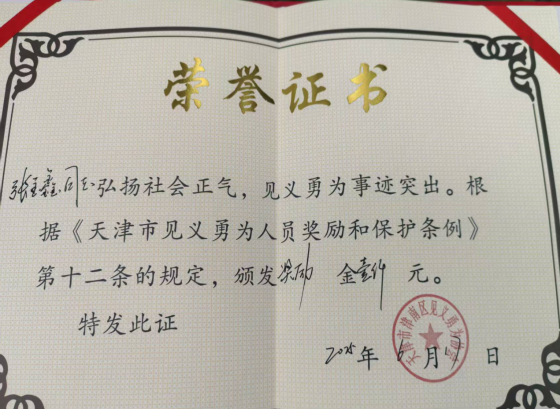 荣誉证书
张玉鑫同志弘扬社会正气，见义勇为事迹突出。根
据《天津市见义勇为人员奖励和保护条例》
第十二条的规定，颁发奖励 金壹仟 元。
特发此证
天津市津南区见义勇为协会
2025年6月17日